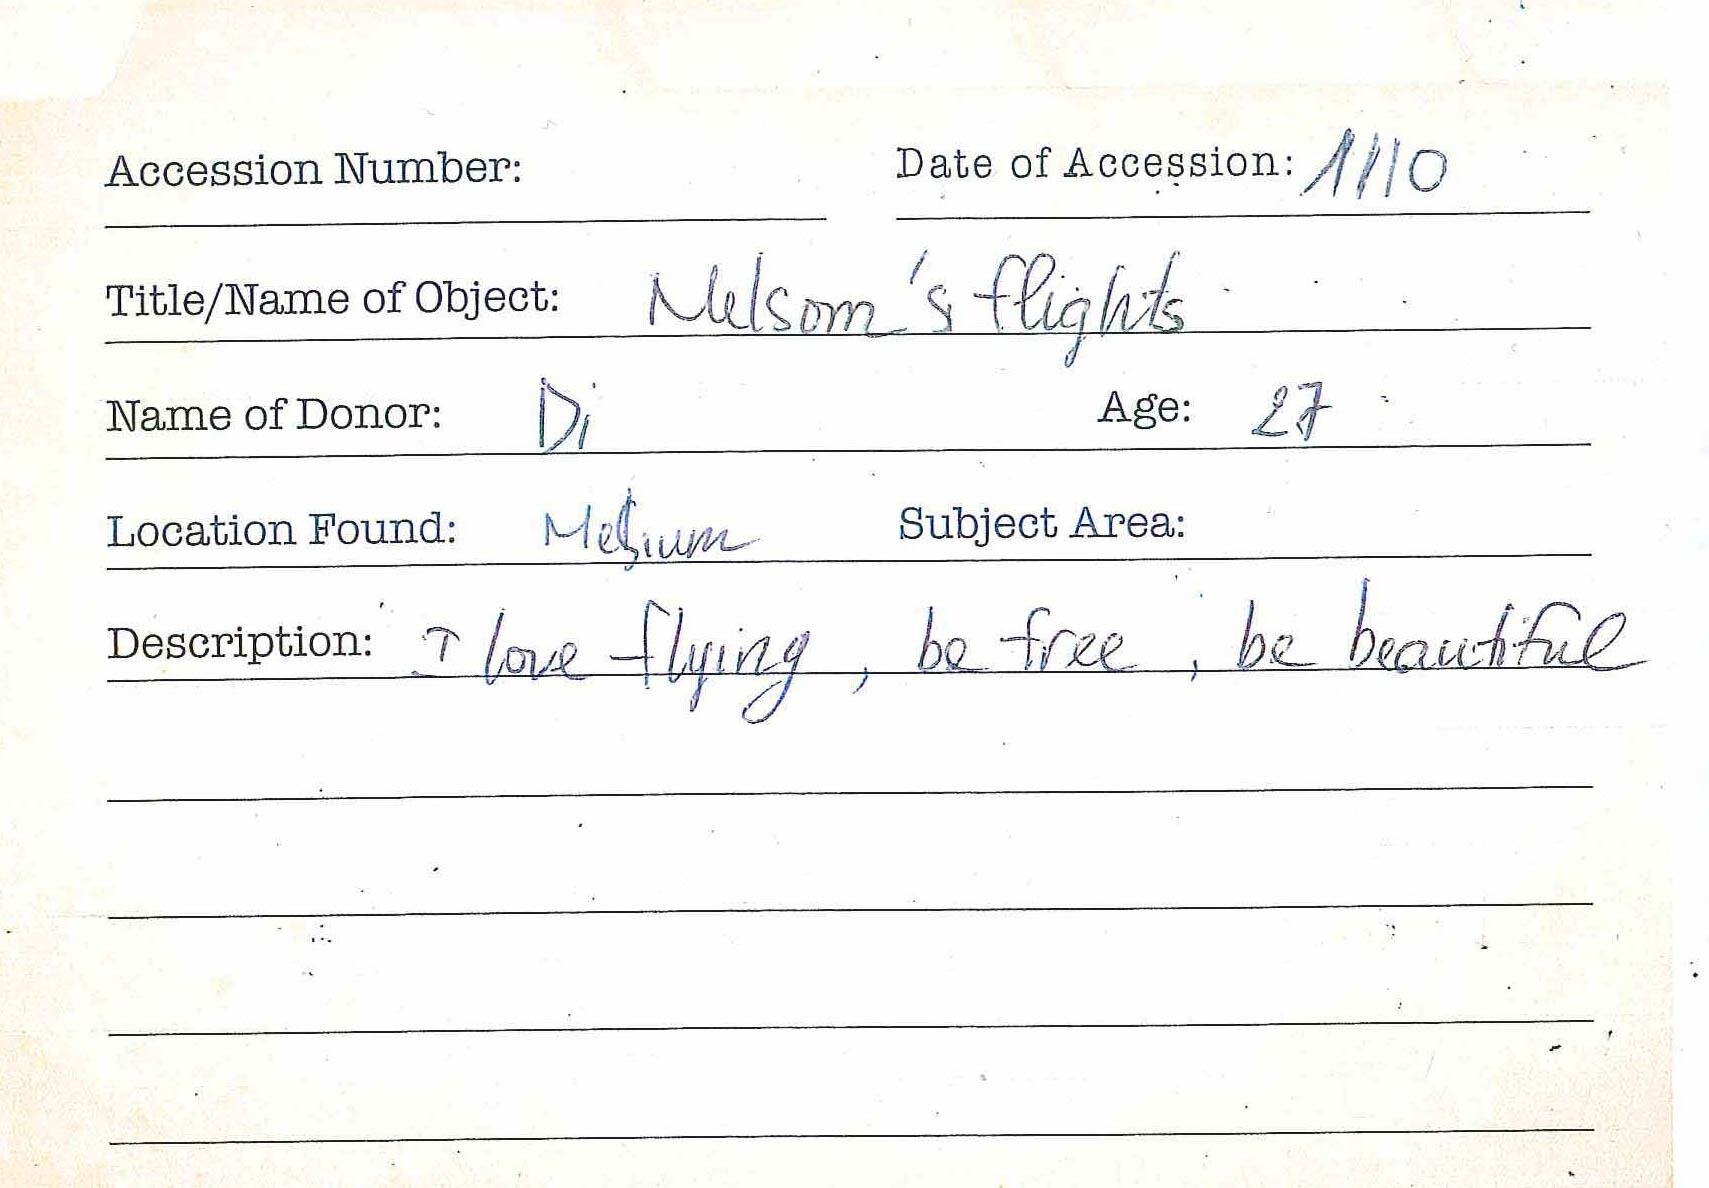 Accession Number: Date of Accession: 1/10
Title/Name of Object: Nelsom's flights
Name of Donor: Di Age: 27
Location Found: Subject Area:
Description: I love flying, be free, be beautiful